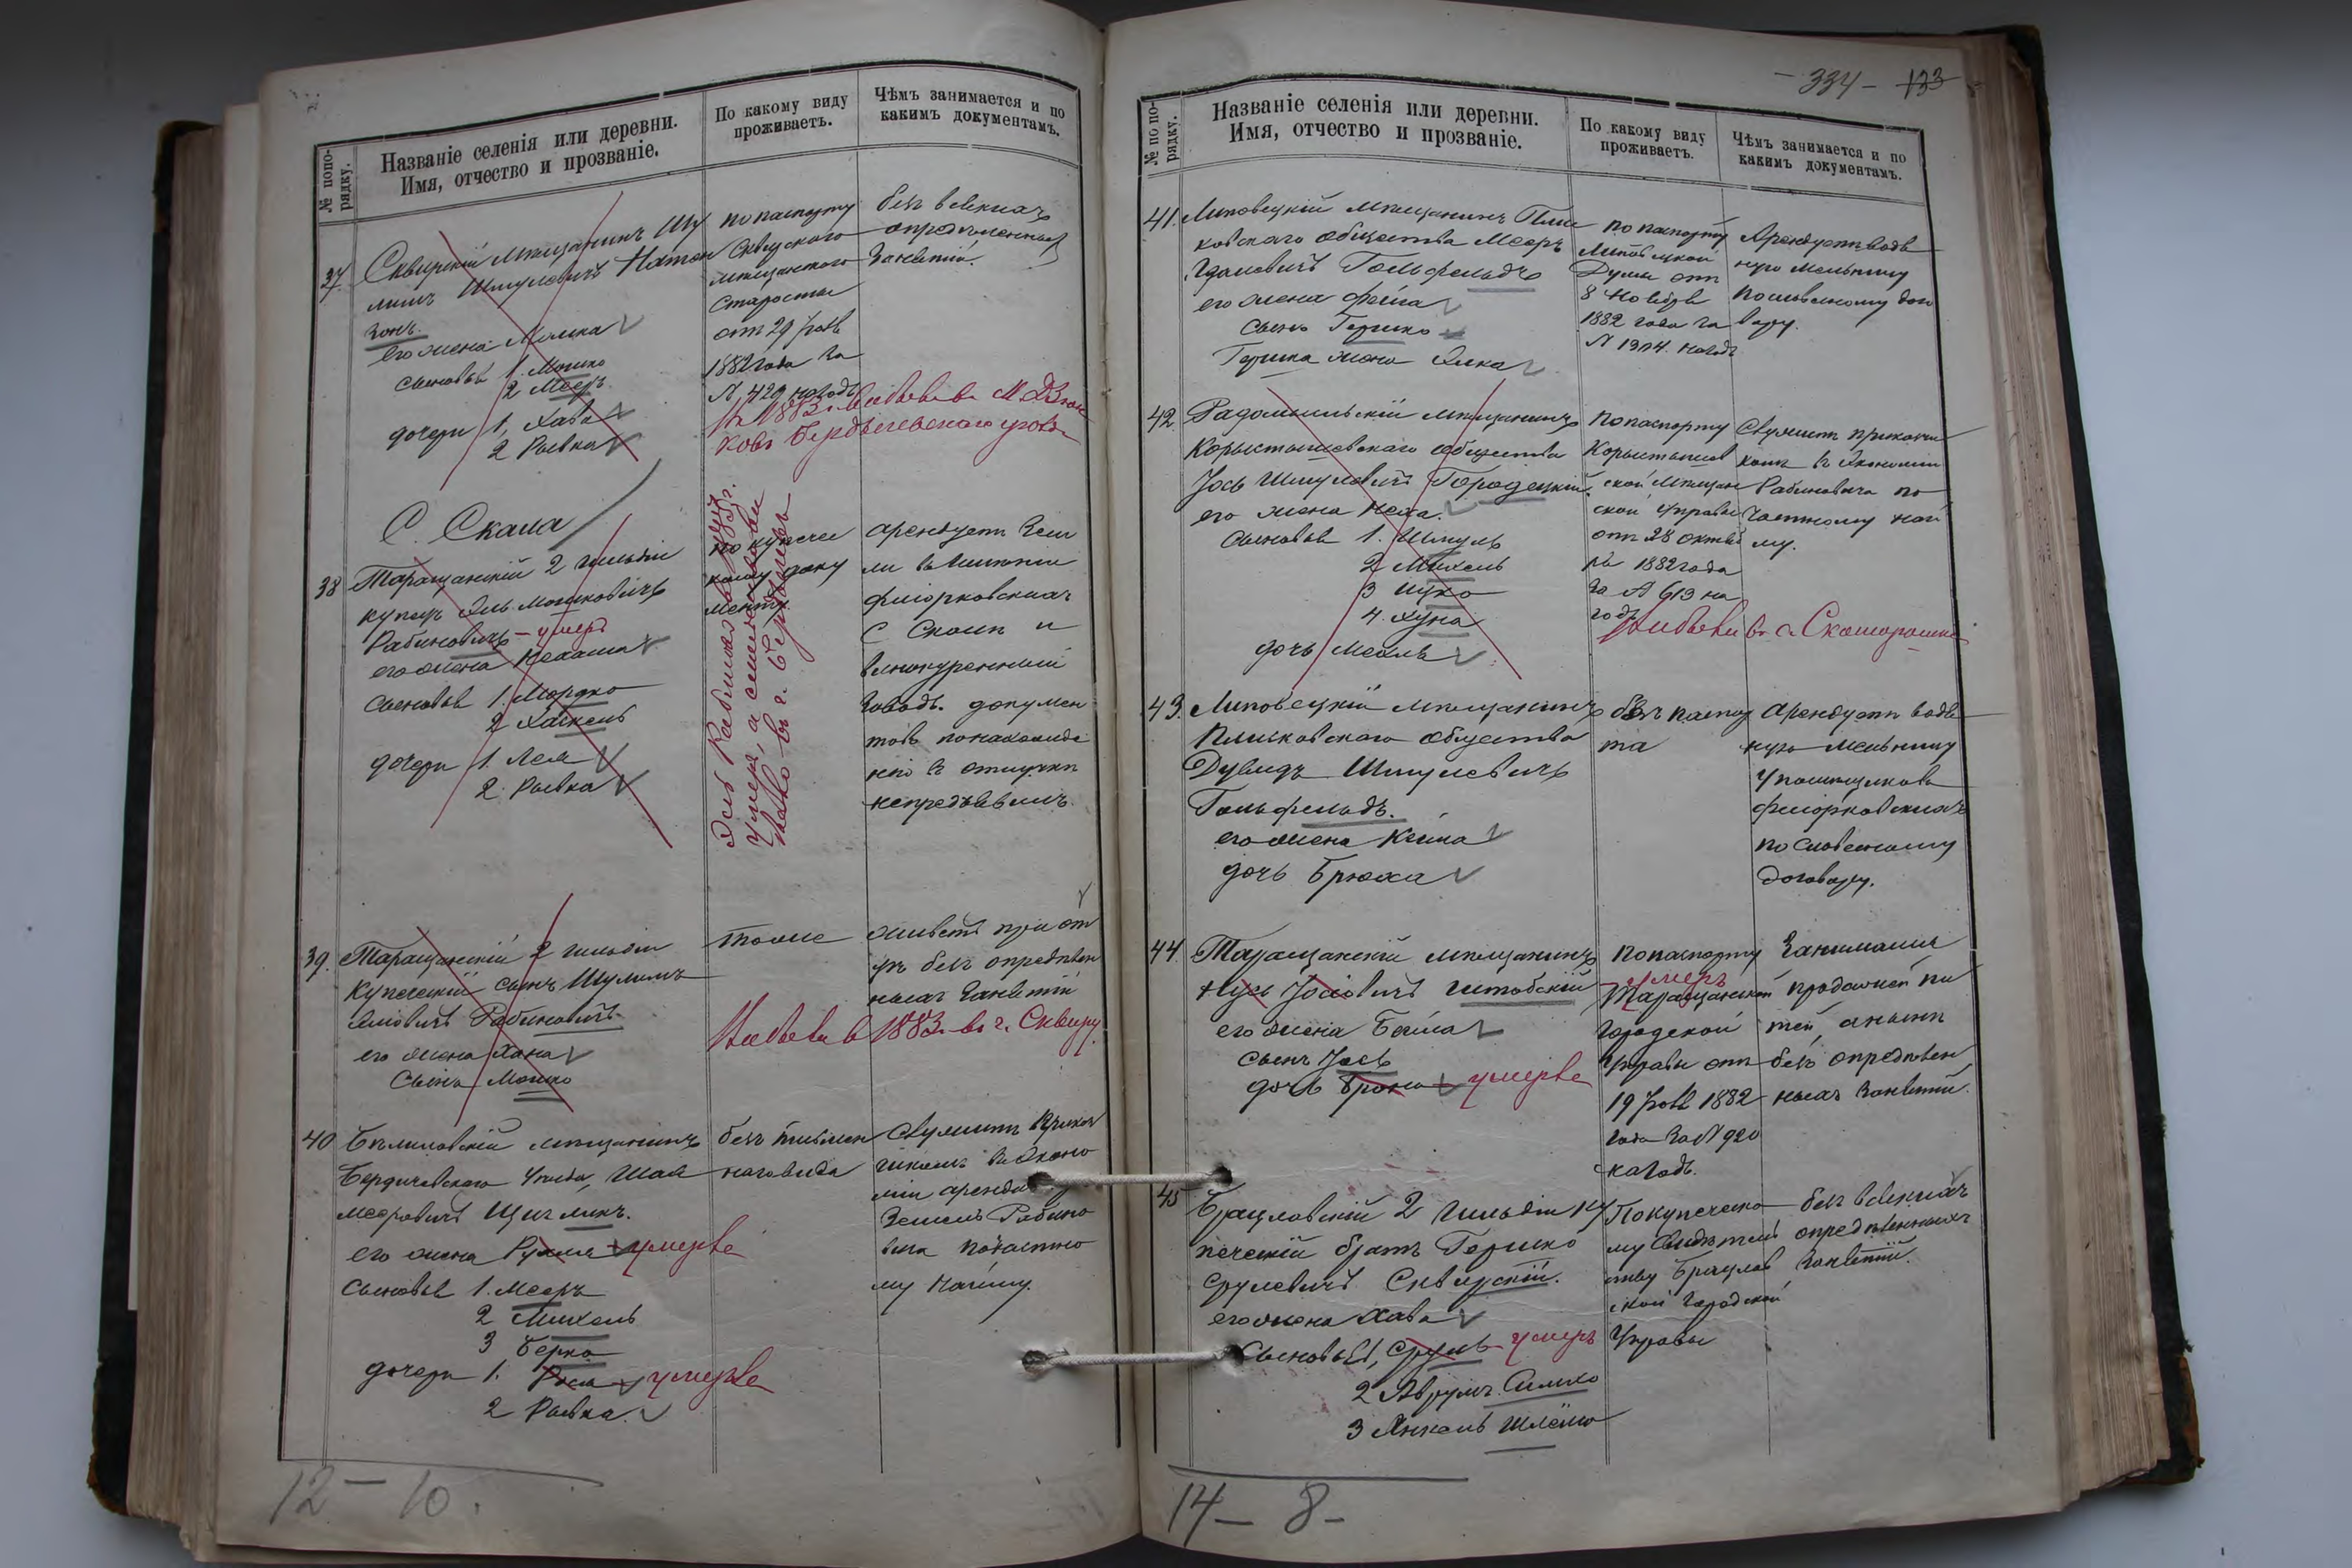 № попо-
рядку.
Названіе селенія или деревни.
Имя, отчество и прозваніе.
По какому виду
проживаетъ.
Чѣмъ занимается и по
какимъ документамъ.
37.
Сквирскій мѣщанинъ Шу
лимъ Шмулевичъ Натан
зонъ.
его жена Малка
сыновья 1. Мошко
2 Мееръ
дочери 1, Хава
2 Рывка
по паспорту
Сквирского
мѣщанского
Старосты
отъ 29
1882 года за
№ 429 на годъ
безъ всякихъ
определенныхъ
занятій.
Въ 1883 г. выбыли въ м. Дзюн
ковъ Бердичевскаго уезда
С. Скала
38
Таращанскій 2 гильдіи
купецъ Эль Мошковичъ
Рабиновичъ - умеръ
его жена Нехама
сыновья 1. Мордко
2 Хаскель
дочери 1. Лея
2. Рывка
по купечес
кому доку
менту
Эль Рабиновичъ
умеръ, а семейство
выбыло въ г. Бердичевъ
арендуетъ зем
ли въ имѣніи
Фліорковскихъ
С Скалы и
винокуренный
заводъ. докумен
товъ по нахожде
нію в отлучкѣ
непредъявилъ.
39.
Таращанскій 2 гильдіи
купеческій сынъ Шулимъ
Елювичъ Рабиновичъ.
его жена Хана
сынъ Мошко
тоже
живетъ при от
цѣ безъ определен
ныхъ занятій
Выбыли в 1883 въ г. Сквиру.
40
Бѣлиловскій мѣщанинъ
Бердичевского уѣзда, Шая
Меэровичъ Щигликъ.
его жена Рухля умерла
сыновья 1. Меэръ
2 Михель
3 Берко
дочери 1. Рося умерла
2 Рывка.
безъ письмен
наго вида
служитъ прикащ
чикомъ въ эконо
міи аренда
земель Рабино
вича по частно
му найму.
12 - 10.
- 334 - 133
№ по по-
рядку.
Названіе селенія или деревни.
Имя, отчество и прозваніе.
По какому виду
проживаетъ.
Чѣмъ занимается и по
какимъ документамъ.
41.
Липовецкій мѣщанинъ Плис
ковскаго общества Меэръ
Гольфельдъ
его жена Фейга
сынъ Гершко
Гершка жена Элка
по паспорту
Липовецкой
Думы отъ
8 Ноября
1882 года за
№ 1904. на годъ
Арендуетъ водя
ную мельницу
по словесному дого
вору.
42.
Радомысльскій мѣщанинъ
Коростышевскаго общества
Іось Шмулевичъ Городецкій.
его жена Неха.
сыновья 1. Шмуль
2 Михель
3 Ицко
4. Хуна
дочь Меаль
По паспорту
Коростышев
ской мѣщан
ской управы
отъ 28 октяб
ря 1882 года
за № 613 на
годъ
Служитъ прикащи
комъ въ экономіи
Рабиновича по
частному най
му.
выбыли въ с. Скоморошки
43.
Липовецкій мѣщанинъ
Плисковскаго общества
Дувидъ Шмулевичъ
Гольфельдъ.
его жена Кейла
дочь Брюха
безъ паспор
та
арендуетъ водя
ную мельницу
у помѣщиковъ
Фліорковскихъ
по словесному
договору.
44.
Таращанскій мѣщанинъ
Нусь Іосіовичъ Китовскій
его жена Бейла
сынъ Іось
дочь Брона умерла
По паспорту
умеръ
Таращанской
городской
Управы отъ
19 1882
года за № 920
на годъ.
Занимался
продажей пи
тей, а нынѣ
безъ определен
ныхъ занятій.
45
Брацловскій 2 гильдіи ку
печескій братъ Гершко
Срулевичъ Сквирскій.
его жена Хава
сыновья 1, Сруль умеръ
2 Аврумъ Симхо
3 Янкель Шлёмо
По купеческо
му свидѣтель
ству Брацлав
ской городской
Управы
безъ всякихъ
определенныхъ
занятій.
14 - 8 -